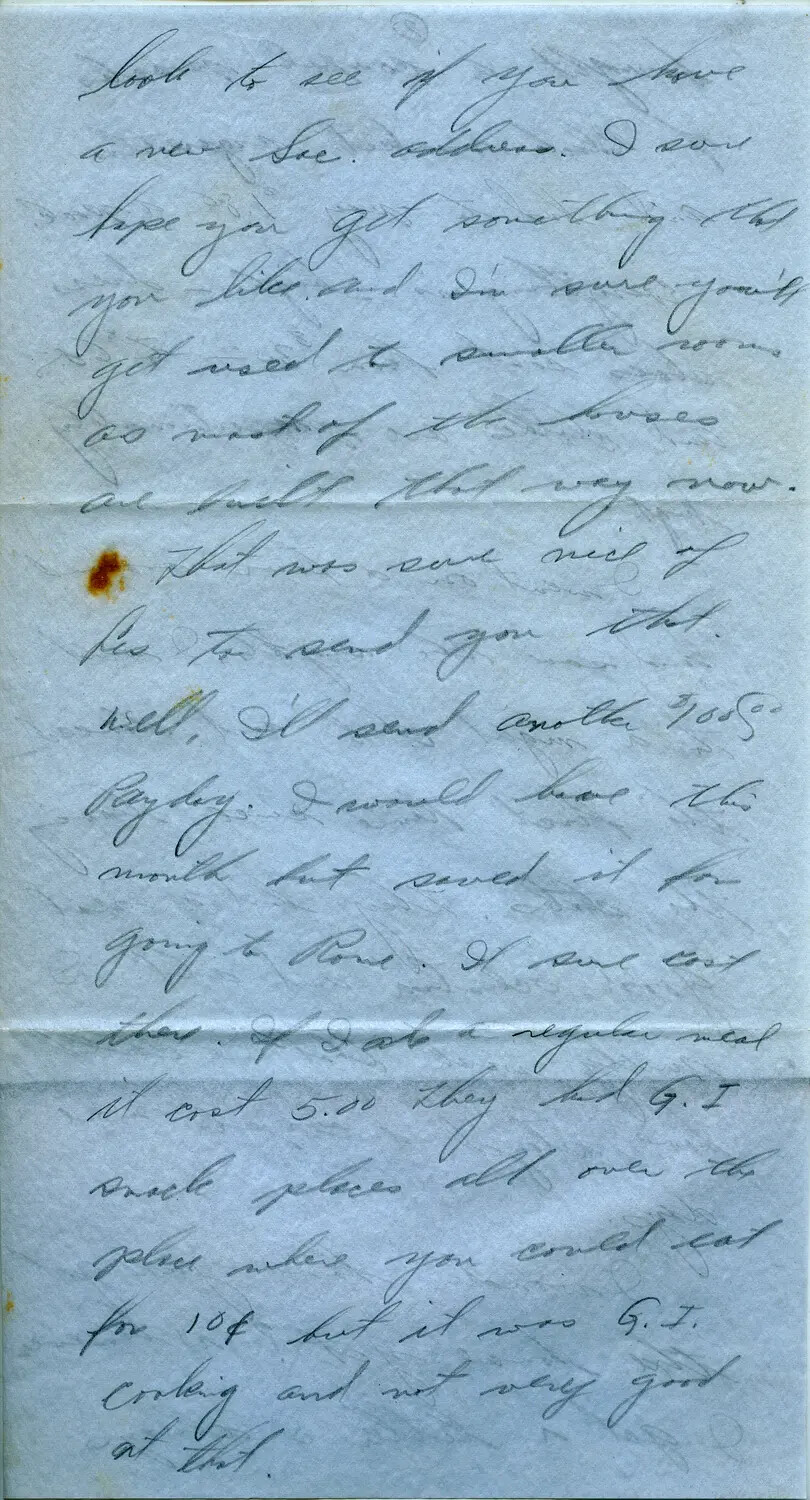 look to see if you have
a new Sac. address. I sure
hope you get something that
you like and I'm sure you'll
get used to smaller rooms
as most of the houses
are built that way now.
That was sure nice of
Les to send you that.
Well, I'll send another $100.00
Payday. I would have this
month but saved it for
going to Rome. It sure cost
there. If I ate a regular meal
it cost 5.00 They had G. I
snack places all over the
place where you could eat
for 10¢ but it was G. I.
cooking and not very good
at that.